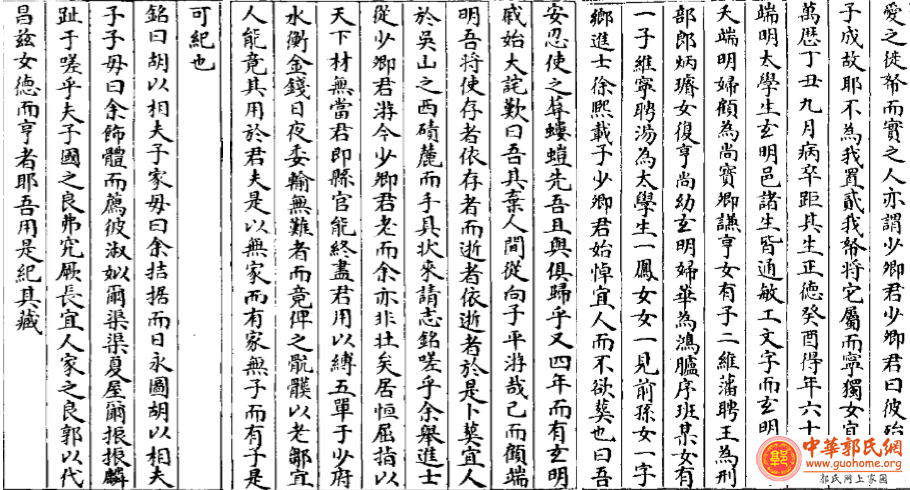 愛之徙帑而實之人亦謂少卿君少卿君曰彼殆
子成故耶不為我置貳我帑將它屬而寧獨女宜
萬曆丁丑九月病卒距其生正德癸酉得年六十
端明太學生玄明邑諸生皆通敏工文字而玄明
夭端明婦顧為尚寶卿謙亨女有子二維藩聘王為刑
部郎炳璿女復亨尚幼玄明婦華為鴻臚序班某女有
一子維寧聘湯為太學生一鳳女女一見前孫女一字
鄉進士徐熙載子少卿君始悼宜人而不欲葬也曰吾
安忍使之葬螻螘先吾且與俱歸乎又四年而有玄明
戚始大詫歎曰吾其棄人間從向子平游哉已而顧端
明吾將使存者依存者而逝者依逝者於是卜葬宜人
於吳山之西磧麓而手具狀來請志銘嗟乎余舉進士
從少卿君游今少卿君老而余亦非壯矣居恒屈指以
天下材無當君即縣官能終盡君用以縛五單于少府
水衡金錢日夜委輸無難者而竟俾之骯髒以老鄉宜
人能竟其用於君夫是以無家而有家無子而有子是
可紀也
銘曰胡以相夫子家毋曰余拮据而日永圖胡以相夫
子子毋曰余飾體而薦彼淑姒爾渠渠夏屋爾振振麟
趾于嗟乎夫子國之良弗究厥長宜人家之良郭以代
昌茲女德而亨者耶吾用是紀其藏
中華郭氏網
www.guohome.org
郭氏网上家園